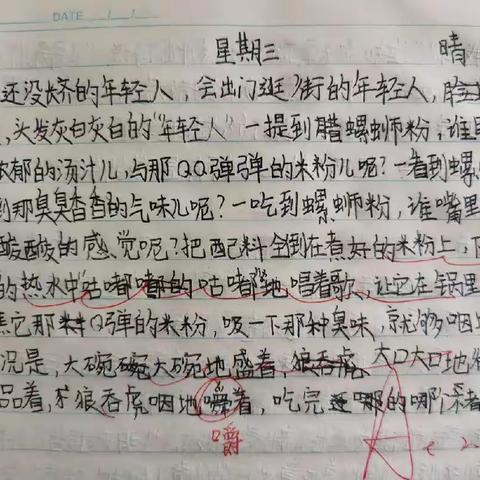 DATE
星期三 晴
还没长齐的年轻人,会出门逛街的年轻人,脸
,头发灰白灰白的“年轻人”一提到腊螺蛳粉,谁
浓郁的汤汁儿,与那QQ弹弹的米粉儿呢?一看到螺
到那臭臭香香的气味儿呢?一吃到螺蛳粉,谁嘴里
酸酸的感觉呢?把配料全倒在煮好的米粉上,下
的热水中“咕嘟嘟的咕嘟”地唱着歌,让它在锅里
它那QQ弹的米粉,吸一下那种臭味,就够咽
况是,大碗大碗地盛着,狼吞虎 大口大口地
品着,狼吞虎咽地嚼着,吃完 那的哪
嚼